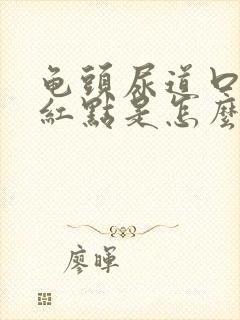 龟頭尿道口
紅點是怎麼
廖暉